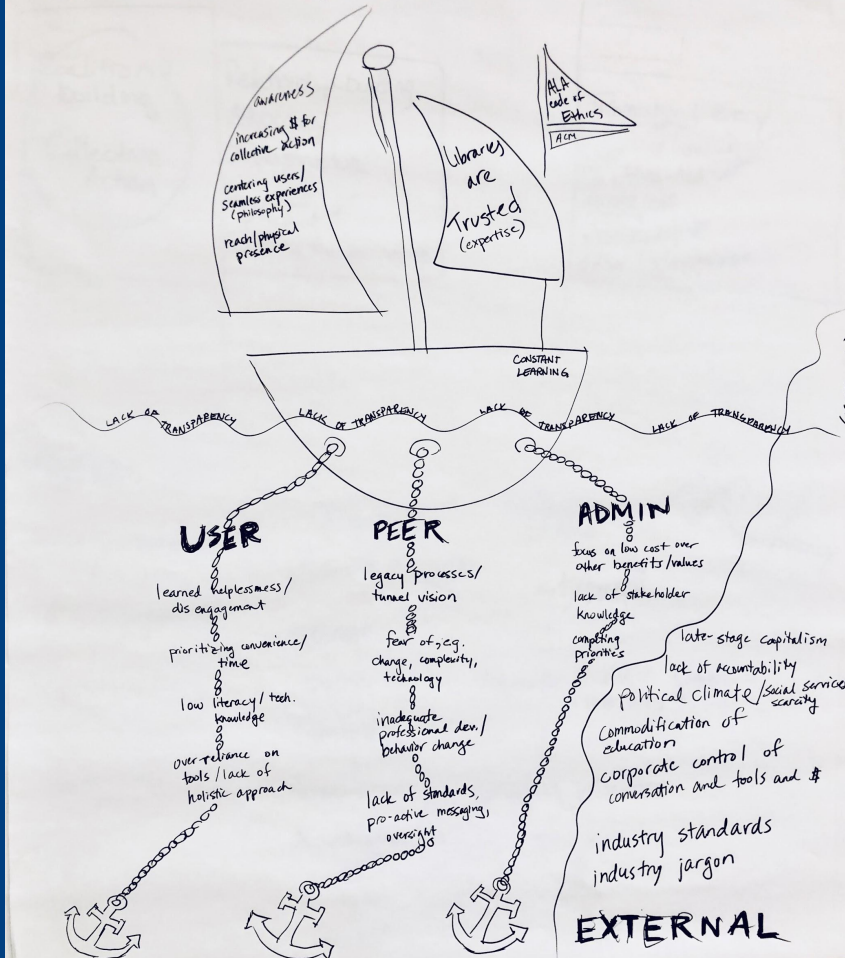 awareness
increasing $ for
collective action
centering users/
seamless experiences
(philosophy)
reach/physical
presence
Libraries
are
Trusted
(expertise)
ALA
code of
Ethics
ACM
CONSTANT
LEARNING
LACK OF TRANSPARENCY LACK OF TRANSPARENCY LACK OF TRANSPARENCY LACK OF TRANSPARENCY
USER
learned helplessness/
disengagement
prioritizing convenience/
time
low literacy/tech.
knowledge
over-reliance on
tools/lack of
holistic approach
PEER
legacy processes/
tunnel vision
fear of, e.g.
change, complexity,
technology
inadequate
professional dev./
behavior change
lack of standards,
pro-active messaging,
oversight
ADMIN
focus on low cost over
other benefits/values
lack of stakeholder
knowledge
competing
priorities
late-stage capitalism
lack of accountability
political climate/social services
scarcity
Commodification of
education
corporate control of
conversation and tools and $
industry standards
industry jargon
EXTERNAL